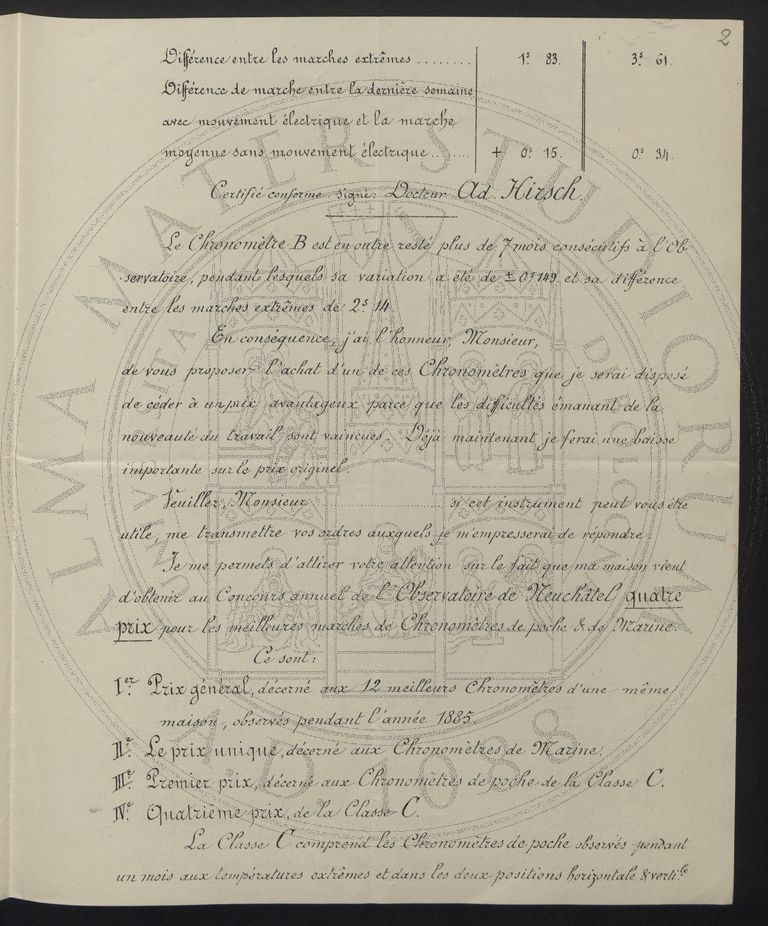 2
Différence entre les marches extrêmes ........ 1ˢ 83. 3ˢ 61.
Différence de marche entre la dernière semaine
avec mouvement électrique et la marche
moyenne sans mouvement électrique ........ + 0ˢ 15. 0ˢ 34.
Certifié conforme signé: Docteur Ad. Hirsch.
Le Chronomètre B est en outre resté plus de 7 mois consécutifs à l'Ob-
-servatoire, pendant lesquels sa variation a été de ± 0ˢ149 et sa différence
entre les marches extrêmes de 2ˢ 14
En conséquence, j'ai l'honneur, Monsieur,
de vous proposer l'achat d'un de ces Chronomètres que je serai disposé
de céder à un prix avantageux parce que les difficultés émanant de la
nouveauté du travail sont vaincues. Déjà maintenant je ferai une baisse
importante sur le prix originel.
Veuillez, Monsieur ........ si cet instrument peut vous être
utile, me transmettre vos ordres auxquels je m'empresserai de répondre.
Je me permets d'attirer votre attention sur le fait que ma maison vient
d'obtenir au Concours annuel de l'Observatoire de Neuchâtel quatre
prix pour les meilleures marches de Chronomètres de poche & de Marine.
Ce sont:
Iᵉʳ. Prix général, décerné aux 12 meilleurs Chronomètres d'une même
maison, observés pendant l'année 1885.
IIᵉ. Le prix unique, décerné aux Chronomètres de Marine.
IIIᵉ. Premier prix, décerné aux Chronomètres de poche de la Classe C.
IVᵉ. Quatrième prix, de la Classe C.
La Classe C comprend les Chronomètres de poche observés pendant
un mois aux températures extrêmes et dans les deux positions horizontale & verti.ˡᵉ
ALMA MATER STUDIORUM
A.D. 1088